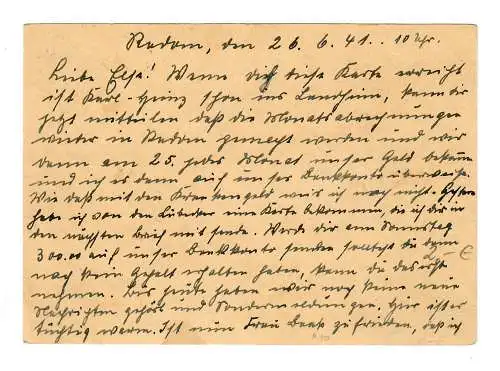 Radom, den 26.6.41. 10 Uhr.
Liebe Else! Wenn dich diese Karte erreicht
ist Karl-Heinz schon ins Landheim, kann dir
jetzt mitteilen daß die Monatsabrechnungen
wieder in Radom gemacht werden und wir
dann am 25. jedes Monat unser Geld bekommen
und ich es dann auf unser Bankkonto überweise.
Wie daß mit den Krankengeld weis ich noch nicht. Gestern
habe ich von den Lübecker eine Karte bekommen, die ich dir in
den nächsten Brief mit sende. Werde dir am Sonntag
300.00 auf unser Bankkonto senden solltest du denn
noch kein Gehalt erhalten haben, kann du das erst
nehmen. Bis heute haben wir noch keine neue
Nachrichten gehört und Sondermeldungen. Hier ist es
tüchtig warm. Ist nun Frau zufrieden, daß ich